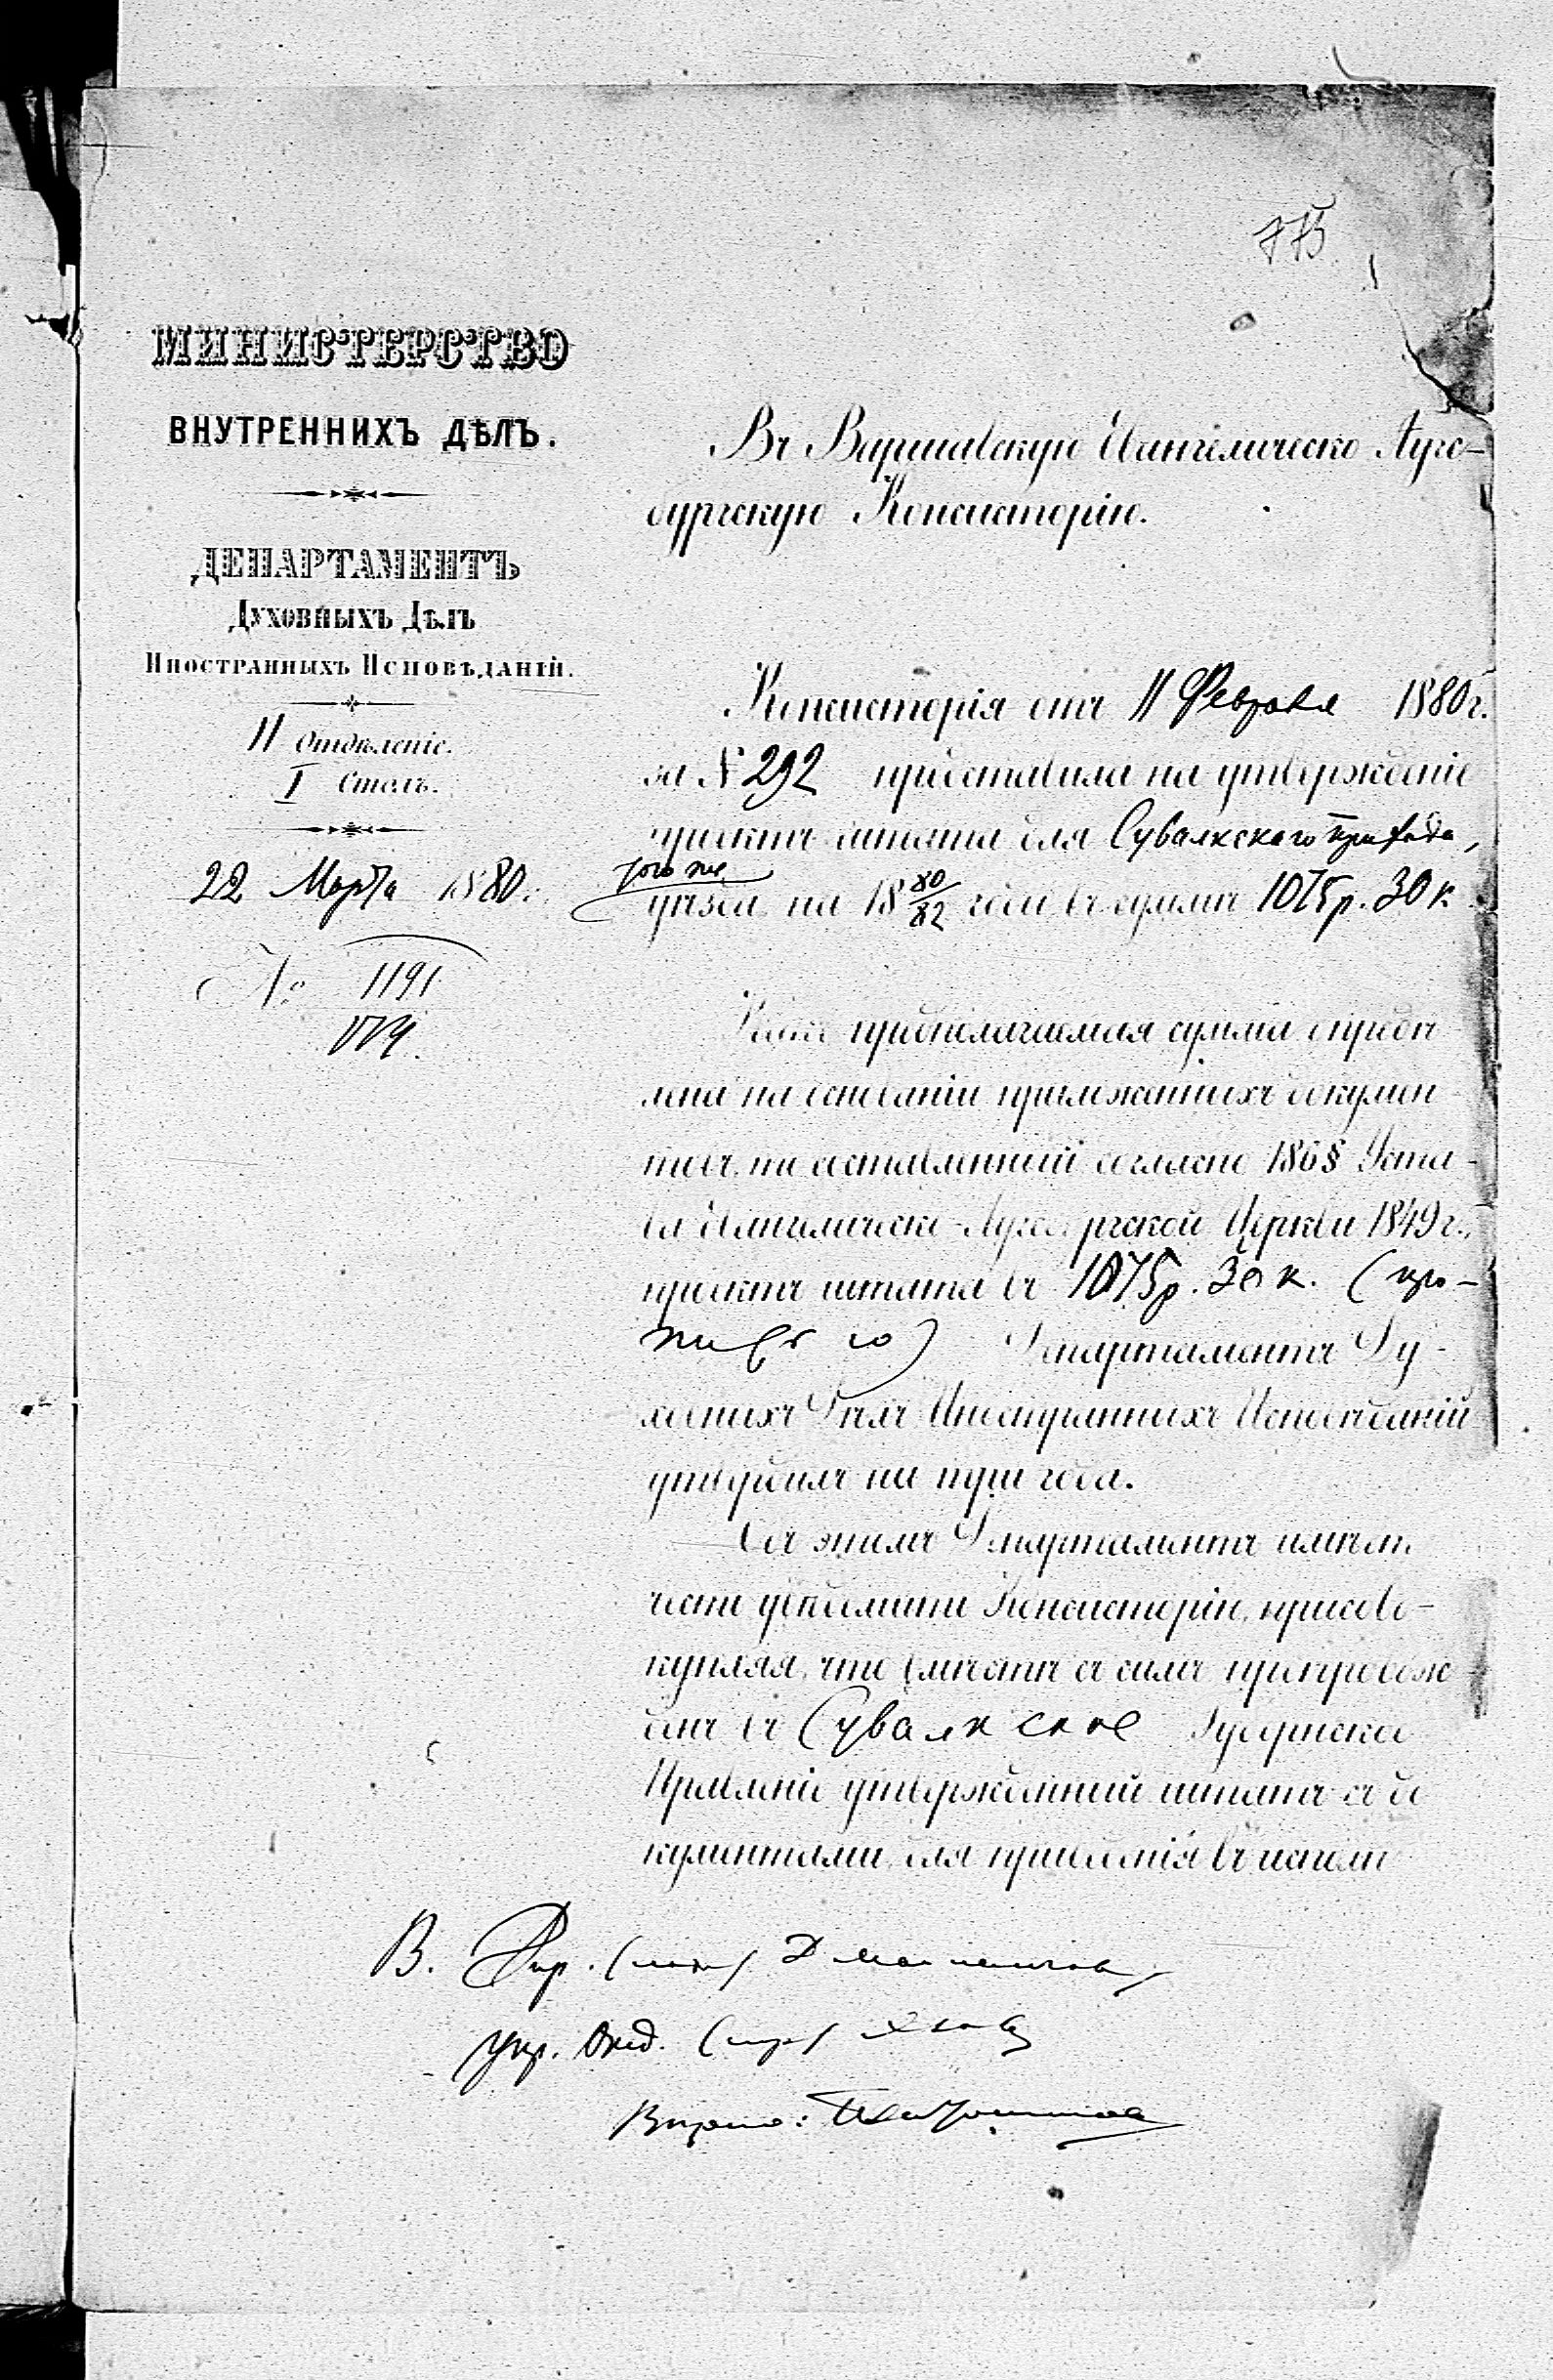 775
МИНИСТЕРСТВО
ВНУТРЕННИХЪ ДѢЛЪ.
ДЕПАРТАМЕНТЪ
Духовныхъ Дѣлъ
Иностранныхъ Исповѣданій.
II Отдѣленіе.
I Столъ.
22 Марта 1880.
№ 1191
Въ Варшавскую Евангелическо Аугс-
бургскую Консисторію.
Консисторія отъ 11 Февраля 1880 г.
за № 292 представила на утвержденіе
проектъ штата для Сувалкскаго прихода,
того же
уѣзда на 18 80/82 годы въ суммѣ 1075 р. 30 к.
предполагаемая сумма опредѣ
лена на основаніи приложенныхъ докумен
товъ, то составленный согласно 186 § Уста-
ва Евангелическо-Аугсбургской Церкви 1849 г.,
проектъ штата въ 1075 р. 30 к.
Департаментъ Ду-
ховныхъ Дѣлъ Иностранныхъ Исповѣданій
утвердилъ на три года.
Объ этомъ Департаментъ имѣетъ
честь увѣдомить Консисторію, присово-
купляя, что вмѣстѣ съ симъ препровож
денъ въ Сувалкское Губернское
Правленіе утвержденный штатъ съ до
кументами, для приведенія въ исполн
В. Дир. (под)
Упр. Отд.
Вѣрно: